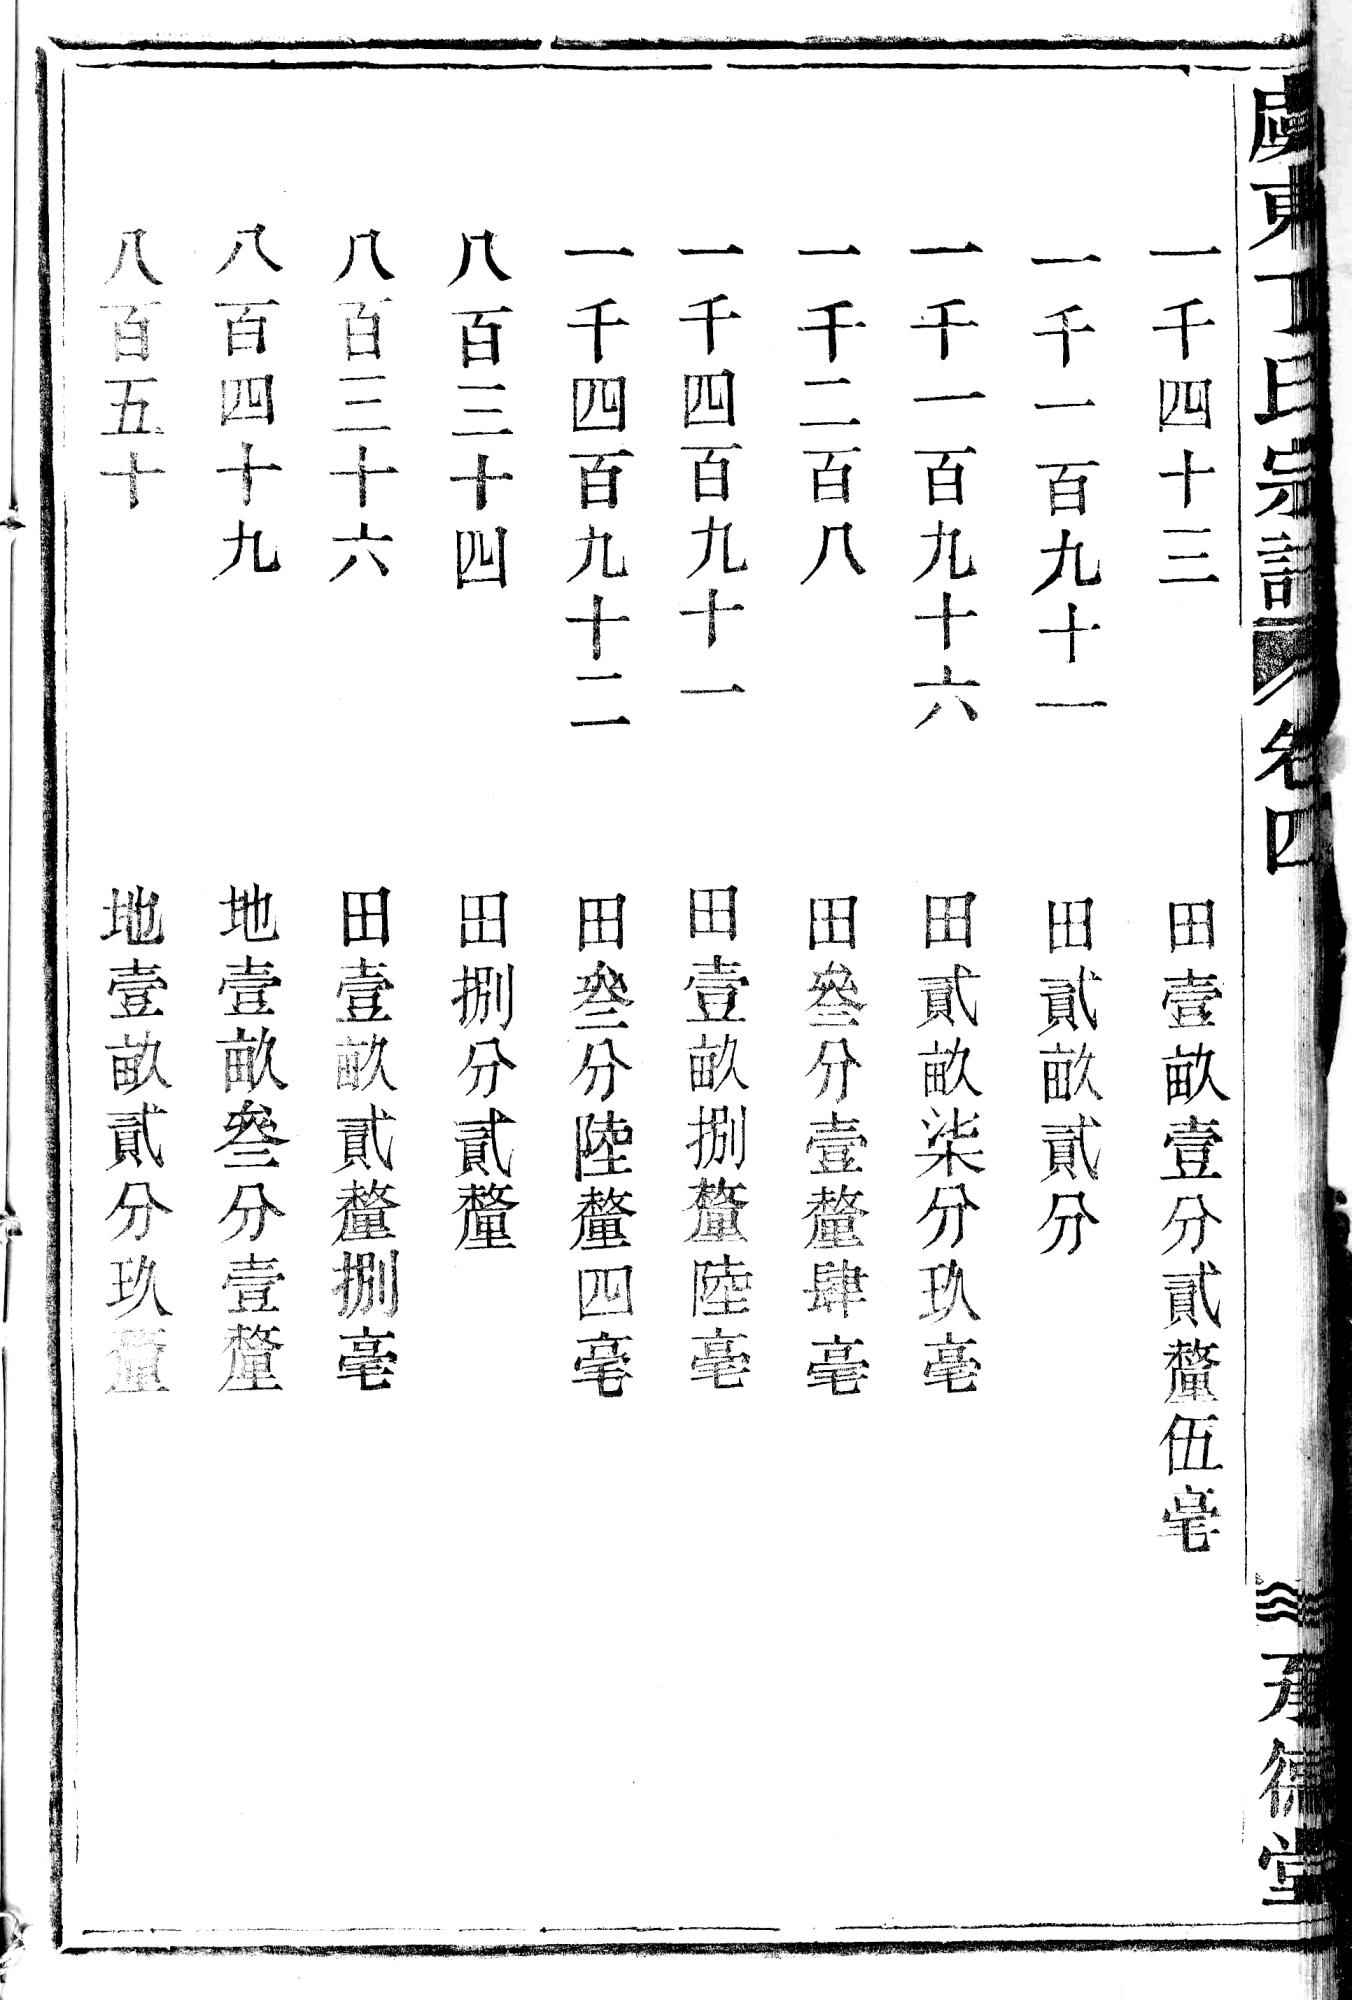 虞東丁氏宗譜 卷四 承德堂
一千四十三 田壹畝壹分貳釐伍毫
一千一百九十一 田貳畝貳分
一千一百九十六 田貳畝柒分玖毫
一千二百八 田叄分壹釐肆毫
一千四百九十一 田壹畝捌釐陸毫
一千四百九十二 田叄分陸釐四毫
八百三十四 田捌分貳釐
八百三十六 田壹畝貳釐捌毫
八百四十九 地壹畝叄分壹釐
八百五十 地壹畝貳分玖釐